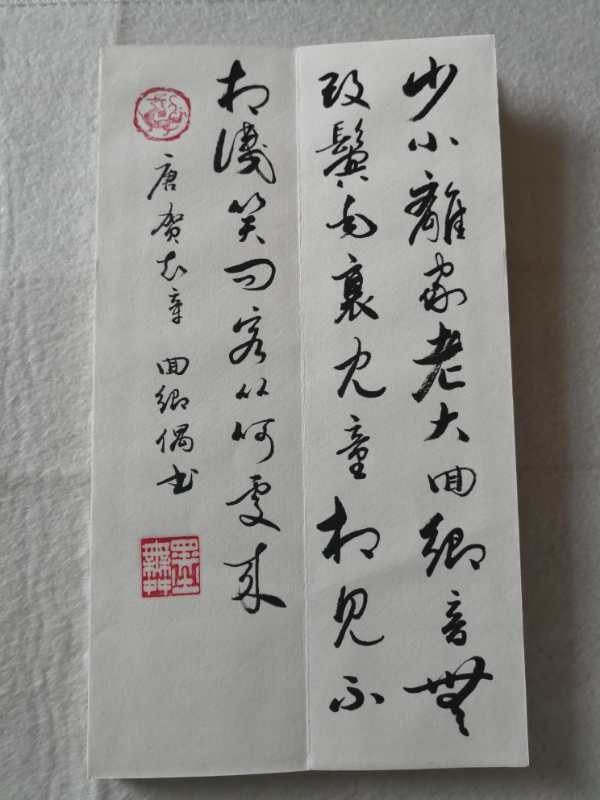 少小離家老大回鄉音無
改鬢毛衰兒童相見不
相識笑問客從何處來
唐賀知章 回鄉偶書